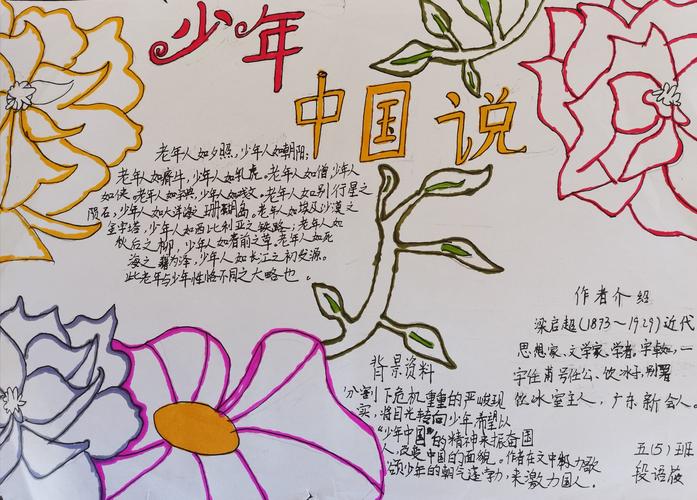 少年
中国说
老年人如夕照,少年人如朝阳;
老年人如瘠牛,少年人如乳虎。老年人如僧,少年人
如侠。老年人如字典,少年人如戏文。老年人如别行星之
陨石,少年人如大洋海之珊瑚岛。老年人如埃及沙漠之
金字塔,少年人如西比利亚之铁路;老年人如
秋后之柳,少年人如春前之草。老年人如死
海之潴为泽,少年人如长江之初发源。
此老年与少年性格不同之大略也。
背景资料
分割下危机重重的严峻现
实,将目光转向少年希望以
"少年中国"的精神来振奋国
人,改变中国的面貌。作者在文中极力歌
颂少年的朝气蓬勃,来激力国人。
作者介绍
梁启超(1873~1929)近代
思想家、文学家、学者。字卓如,一
字任甫号任公、饮冰子,别署
饮冰室主人,广东新会人。
五(5)班
段语